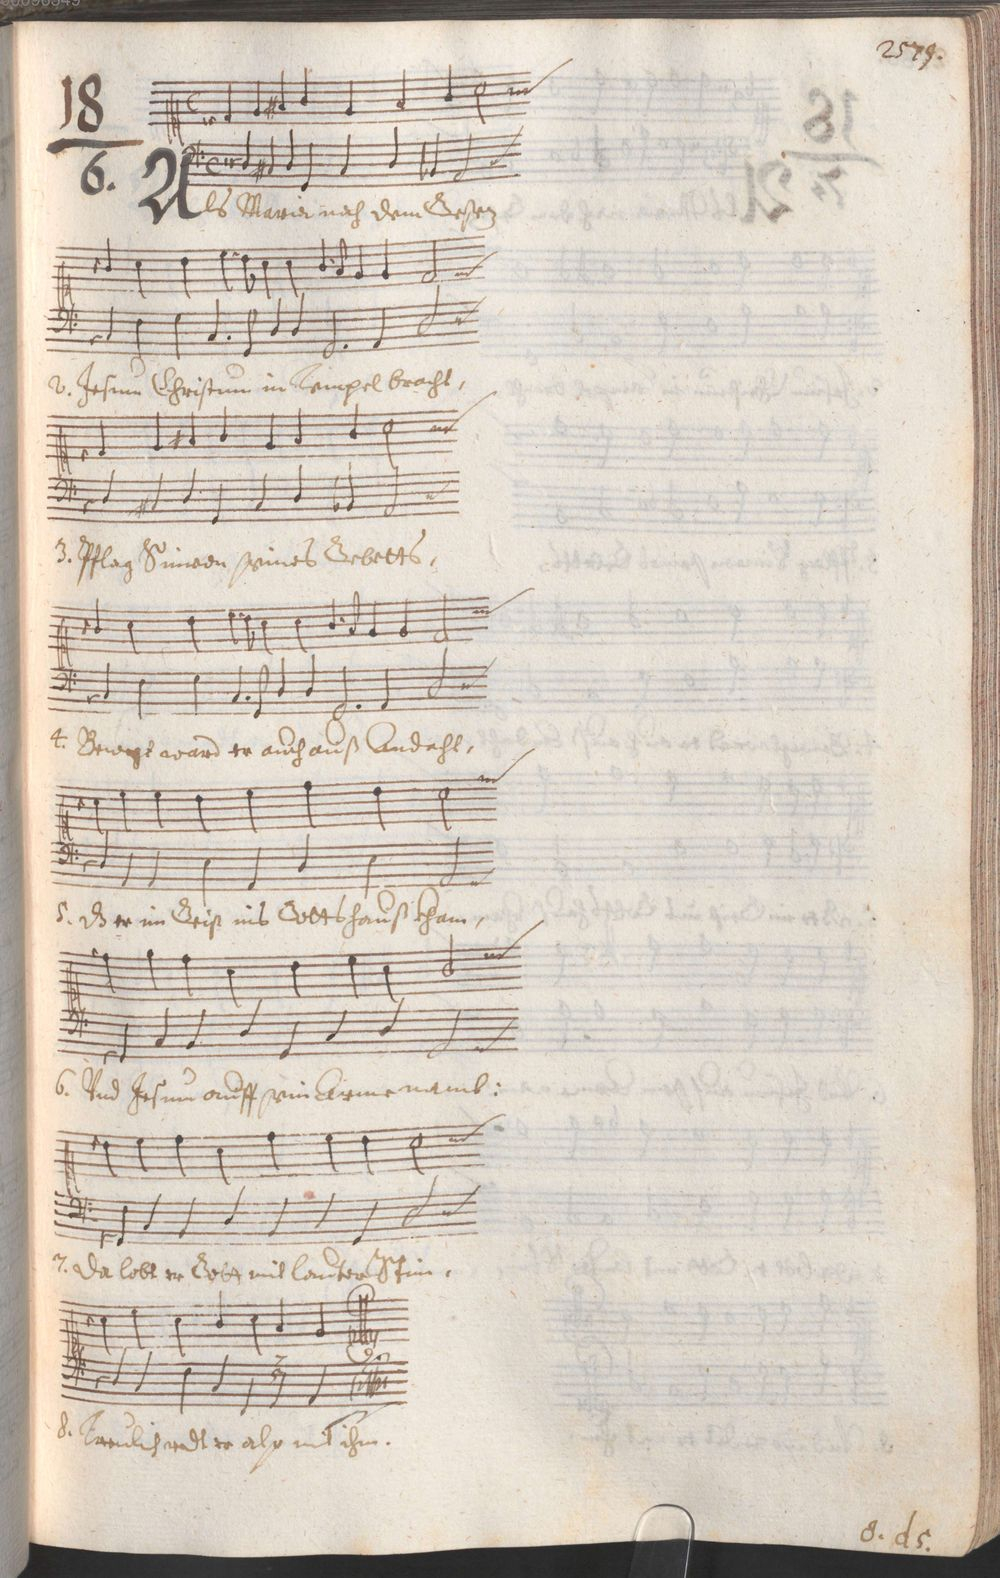 2579.
18
6.
Als Maria nach dem Gesetz
2. Jesum Christum in Tempel bracht,
3. Pflag Simeon seines Gebetts,
4. Bewegt ward er auch auß Andacht,
5. Dz er im Geist ins Gottshauß kham,
6. Und Jesum auff sein Arme namb:
7. Da lobt er Gott mit lauter Stim,
8. Treulich redt er also mit ihm.
8. ds.